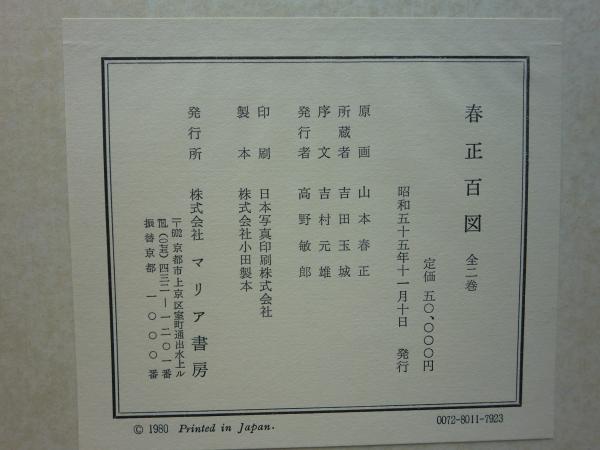 春正百図 全二巻
定価 五〇、〇〇〇円
昭和五十五年十一月十日 発行
原画 山本春正
所蔵者 吉田玉城
序文 吉村元雄
発行者 高野敏郎
印刷 日本写真印刷株式会社
製本 株式会社小田製本
発行所 株式会社 マリア書房
〒602 京都市上京区室町通出水上ル
℡(075)四三二―一二〇一番
振替京都 一〇〇〇番
© 1980 Printed in Japan.
0072-8011-7923